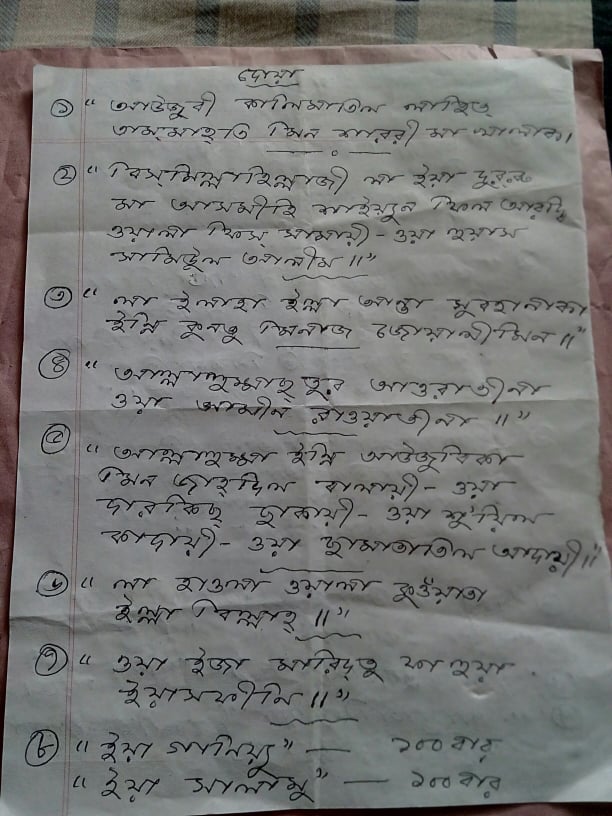 দোয়া
১ "আউজুবী কালিমাতিল লাহিত্
তাম্মাহ্তি মিন শাররী মা খালাক।
২ "বিস্মিল্লাহিল্লাজী লা ইয়া দুররু
মা আসমীহি শাইয়ুন ফিল আরদি
ওয়ালা ফিস্ সামায়ী - ওয়া হুয়াস
সামিউল আলীম॥"
৩ "লা ইলাহা ইল্লা আন্তা সুবহানাকা
ইন্নি কুনতু মিনাজ জোয়ালীমিন॥"
৪ "আল্লাহুম্মাছ্তুর আওরাতীনা
ওয়া আমীন রাওয়াতীনা॥"
৫ "আল্লাহুম্মা ইন্নি আউজুবিকা
মিন জাহ্দিল বালায়ী - ওয়া
দারকিছ্ ছুকায়ী - ওয়া শু'য়িল
কাদায়ী - ওয়া ছামাতাতিল আদায়ী॥"
৬ "লা হাওলা ওয়ালা কুওঁয়াতা
ইল্লা বিল্লাহ্॥"
৭ "ওয়া ইজা মারিদ্তু ফাহুয়া
ইয়াসফীনি॥"
৮ "ইয়া গানিয়্যু" — ১০০ বার
"ইয়া সালামু" — ১০০ বার